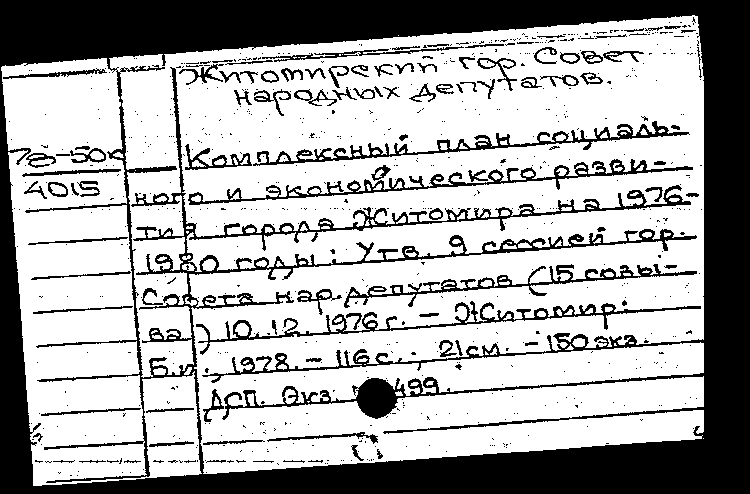 Житомирский гор. Совет
народных депутатов.
78-50к
4015
Комплексный план социаль-
ного и экономического разви-
тия города Житомира на 1976-
1980 годы : Утв. 9 сессией гор.
Совета нар. депутатов (15 созы-
ва) 10.12.1976 г. - Житомир:
Б.и., 1978. - 116 с.; 21 см. - 150 экз.
Дсп. Экз. 499.